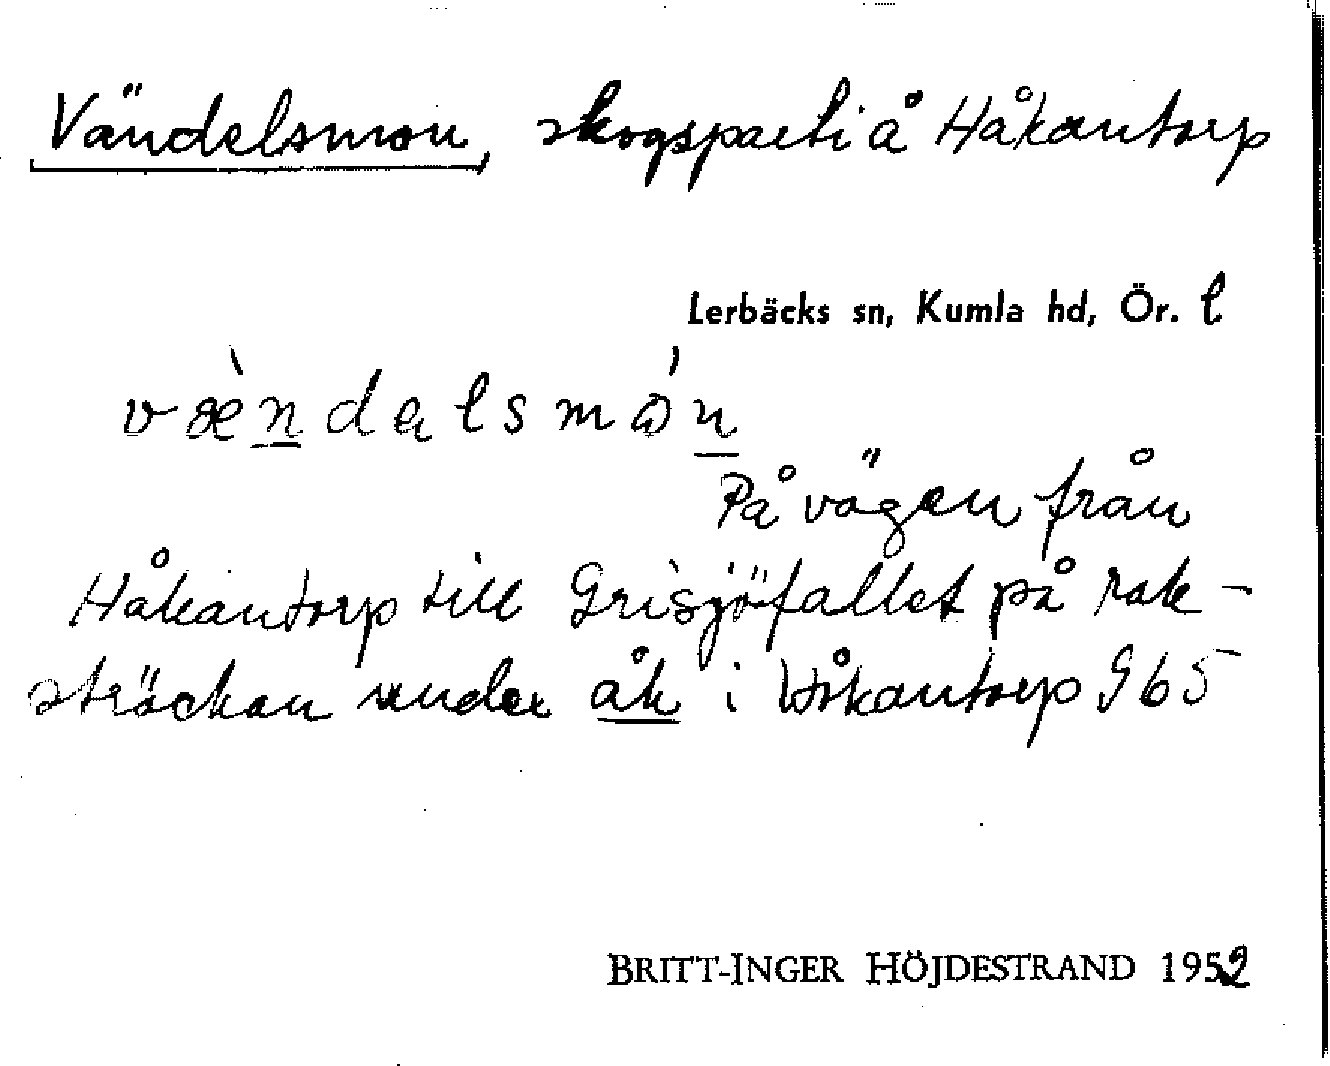 Vändelsmon, skogsparti å Håkantorp
Lerbäcks sn, Kumla hd, Ör. l
væ̀ndəlsmó̀n
På vägen från
Håkantorp till Grisjöfallet på rak-
sträckan under åk i Håkantorp 965
BRITT-INGER HÖJDESTRAND 1952